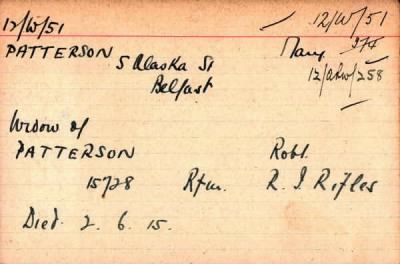 12/W/51 12/W/51
PATTERSON Mary
5 Alaska St 12/
Belfast
Widow of
PATTERSON Robt.
15728 Rfm. R. I Rifles
Died. 2. 6. 15.